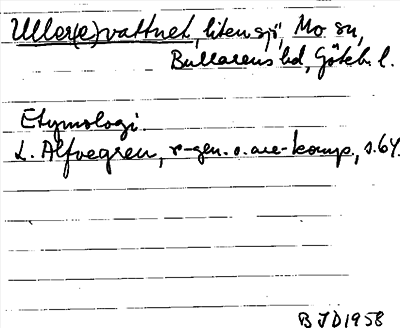 Uller(e)vattnet, liten sjö, Mo sn,
Bullarens hd, Göteb. l.
Etymologi.
L. Alfvegren, r-gen. o. are-komp., s. 64.
B J D 1958